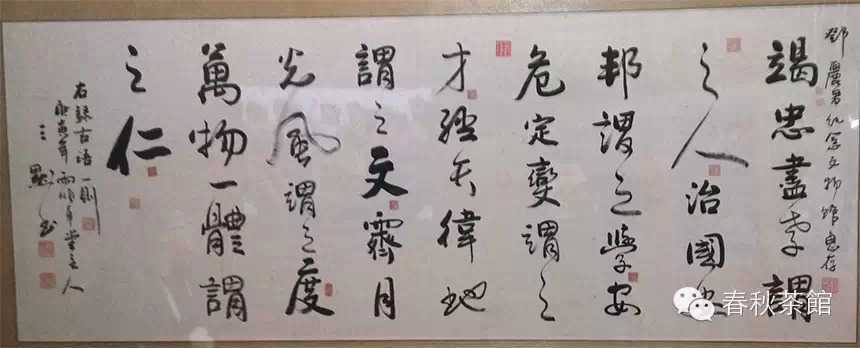 鄧麗君紀念文物館惠存
竭忠盡孝謂
之人治國
邦謂之學安
危定變謂之
才經天緯地
謂之文霽月
光風謂之度
萬物一體謂
之仁
右錄古語一則
庚寅年 堂主人
書
春秋茶館